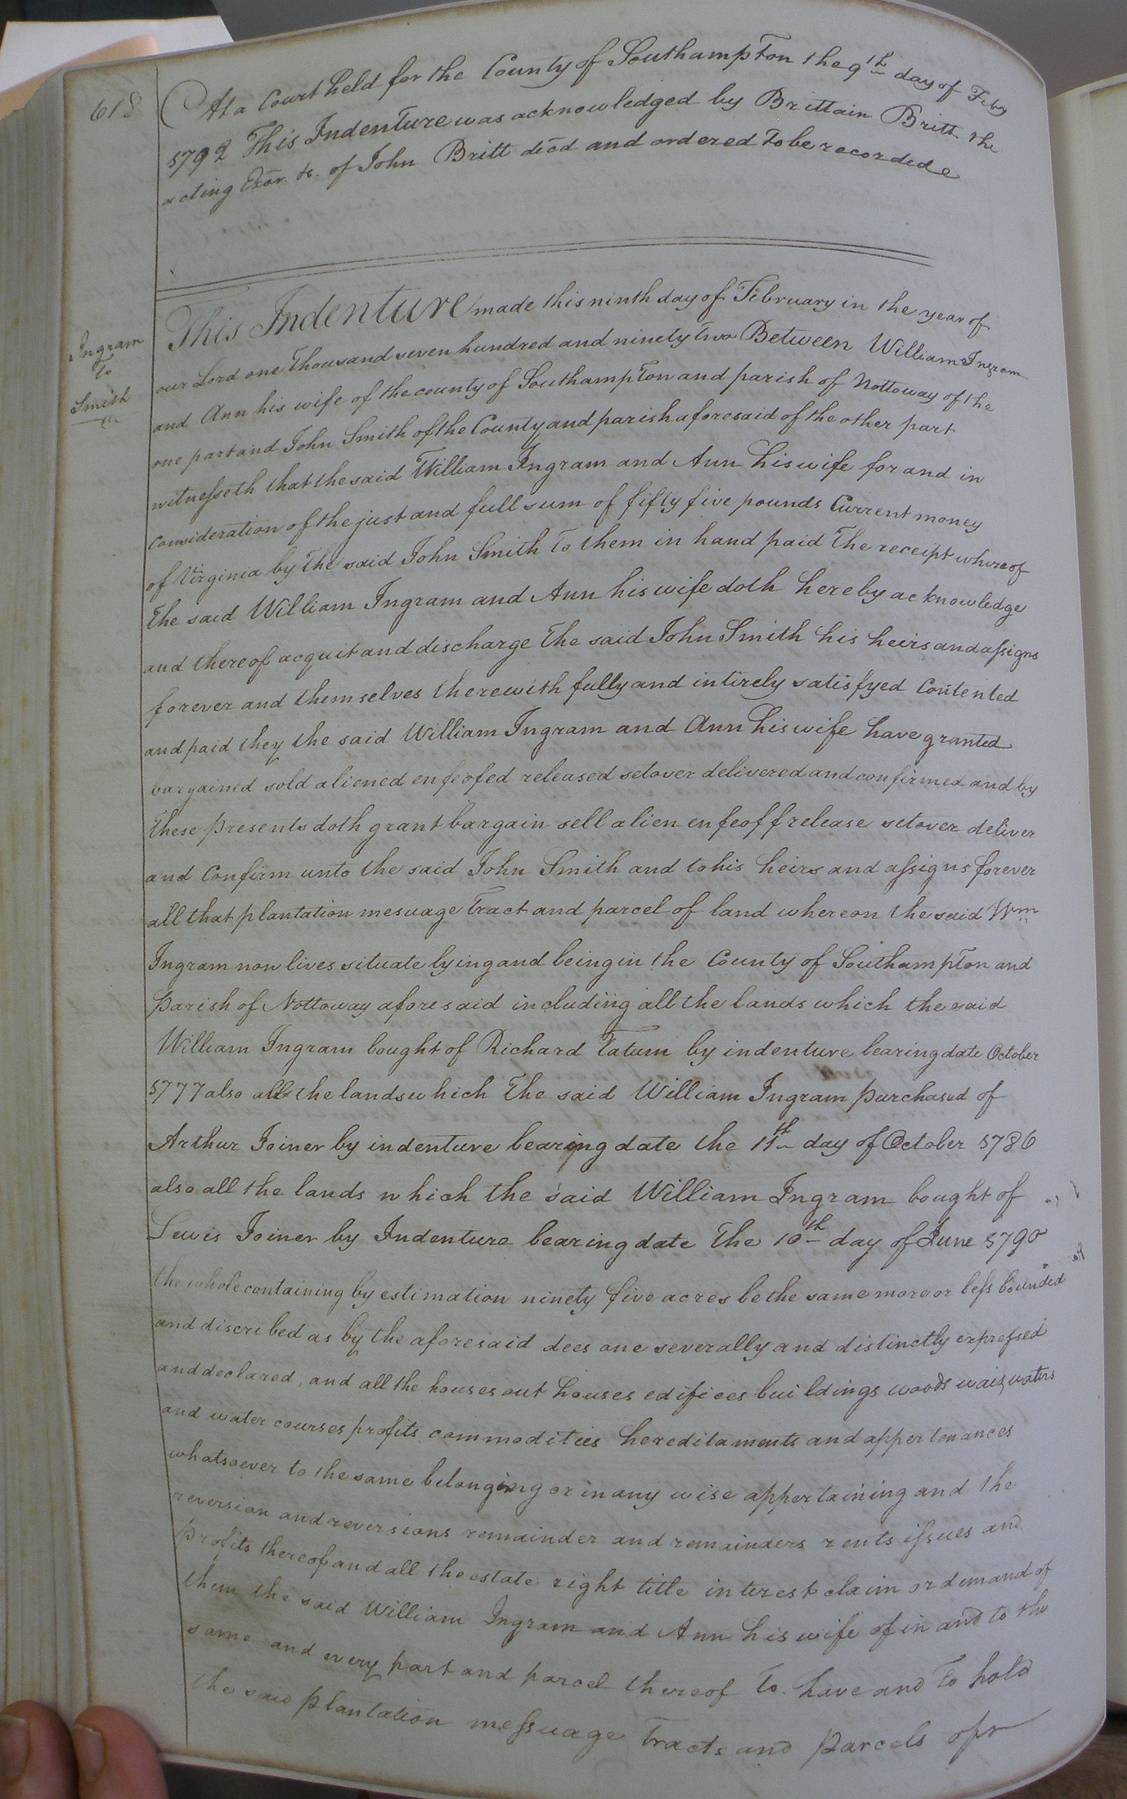 618
At a Court held for the County of Southampton the 9th day of Feby
1792 This Indenture was acknowledged by Brittain Britt the
acting Exor. &c. of John Britt decd and ordered to be recorded
Ingram
To
Smith
This Indenture made this ninth day of February in the year of
our Lord one Thousand seven hundred and ninety two Between William Ingram
and Ann his wife of the county of Southampton and parish of Nottoway of the
one part and John Smith of the County and parish aforesaid of the other part
witnesseth that the said William Ingram and Ann his wife for and in
consideration of the just and full sum of fifty five pounds Current money
of Virginia by the said John Smith to them in hand paid The receipt whereof
The said William Ingram and Ann his wife doth hereby acknowledge
and thereof acquit and discharge the said John Smith his heirs and assigns
forever and themselves therewith fully and intirely satisfyed Contented
and paid they the said William Ingram and Ann his wife have granted
bargained sold aliened enfeofed released setover delivered and confirmed and by
These presents doth grant bargain sell alien enfeoff release setover deliver
and Confirm unto the said John Smith and to his heirs and assigns forever
all that plantation mesuage Tract and parcel of land whereon the said Wm
Ingram now lives situate lying and being in the County of Southampton and
Parish of Nottoway aforesaid including all the lands which the said
William Ingram bought of Richard Tatum by indenture bearing date October
1777 also all the lands which The said William Ingram purchased of
Arthur Joiner by indenture bearing date the 11th day of October 1786
also all the lands which the said William Ingram bought of
Lewis Joiner by Indenture bearing date The 10th day of June 1790
the whole containing by estimation ninety five acres be the same more or less bounded
and discribed as by the aforesaid dees one severally and distinctly expressed
and declared, and all the houses out houses edifices buildings woods wais waters
and water courses profits commodities hereditaments and appertenances
whatsoever to the same belonging or in any wise appertaining and the
reversion and reversions remainder and remainders rents issues and
profits thereof and all the estate right title interest claim or demand of
them the said William Ingram and Ann his wife of in and to the
same and every part and parcel thereof To have and To hold
the said plantation messuage Tracts and parcels of